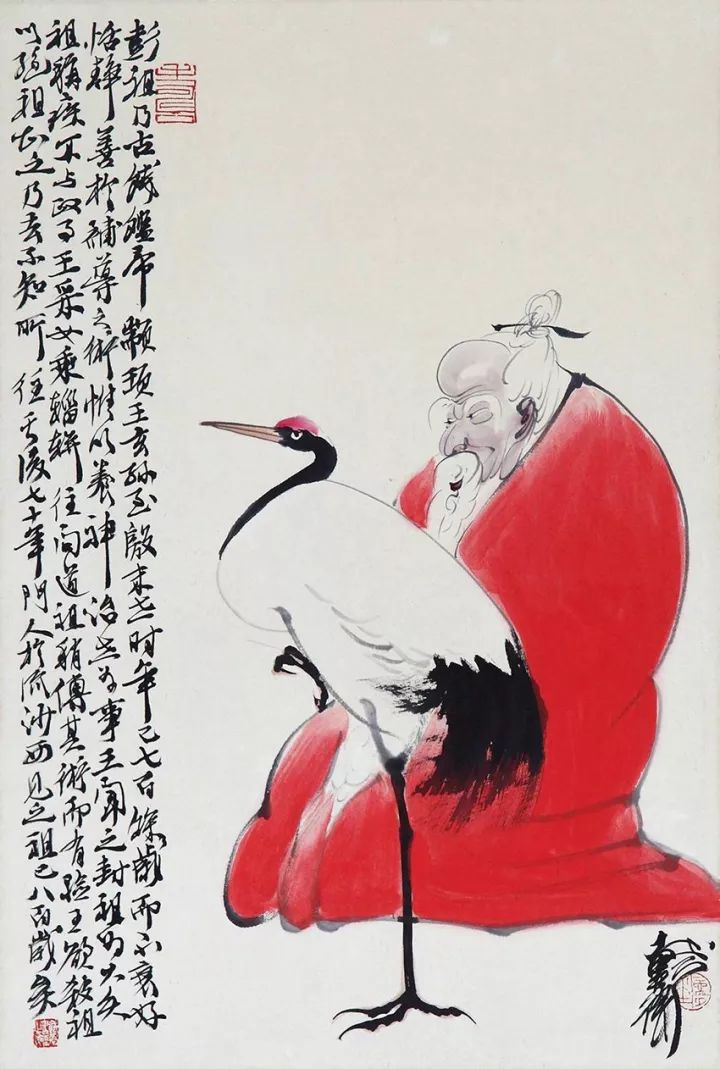 彭祖乃古籛鏗帝顓頊王玄孙至殷末世时年已七百餘歲而不衰好
恬靜善於補導之術惟以養神治生为事王聞之封祖为大夫
祖稱疾不与政事王采女乘輜軿往问道祖稍傳其術而有驗王欲殺祖
以絕祖知之乃去不知所往其後七十年門人於流沙西见之祖已八百歲矣
戴衛